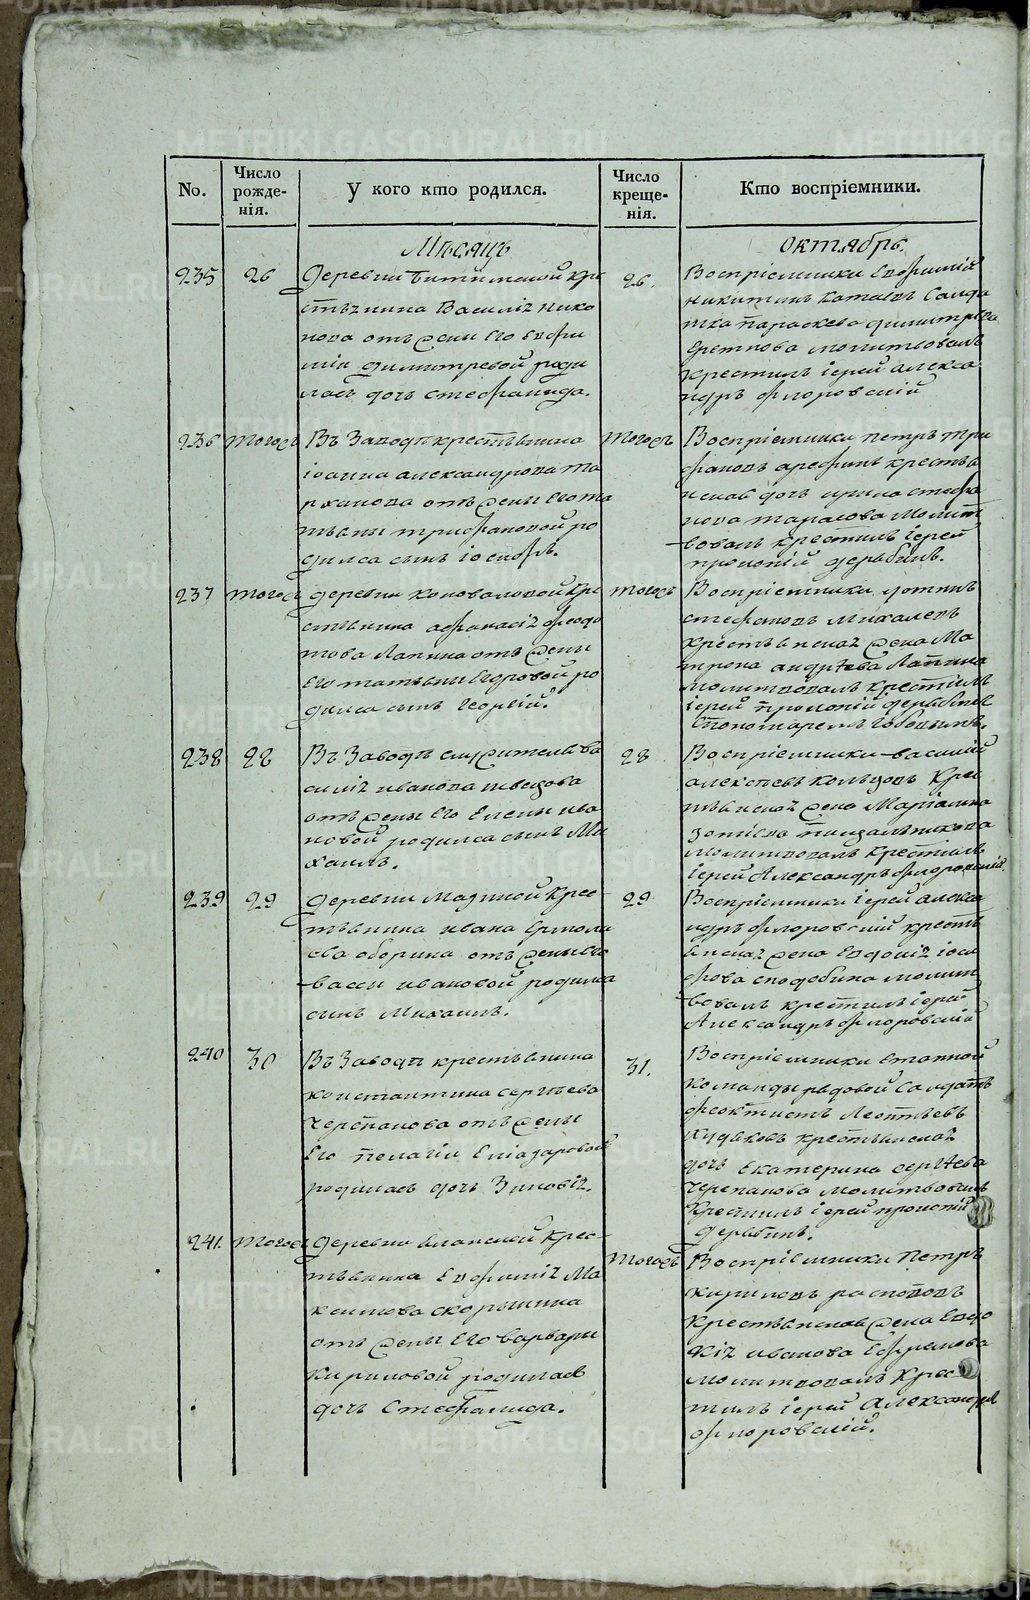 METRIKI.GASO-URAL.RU
No.
Число
рожде-
нія.
У кого кто родился.
Число
креще-
нія.
Кто воспріемники.
Мѣсяцъ
Октябрь
235
26
Деревни Битимской кре
стьянина Василія Нико
нова отъ жены его Евфи
міи Димитревой роди
лась дочь Стефанида.
26.
Воспріемники Евфимій
Никитинъ Катаевъ Солда
тка Параскева Димитрева
молитвовалъ
крестилъ іерей Алекса
ндръ Флоровскій
236
Тогожъ
Въ Заводѣ крестьянина
Іоанна Александрова Та
раканова отъ жены его Та
тьяны Трифановой ро
дился сынъ Іосифъ.
Тогожъ
Воспріемники Петръ Три
фановъ Арефинъ крестья
нская дочь Ирина Стефа
нова Тарасова молит
вовалъ крестилъ іерей
Прокопій Дерябинъ.
237
Тогожъ
Деревни Коноваловой кре
стьянина Афанасія Федо
това Лапина отъ жены
Его Татьяны Егоровой ро
дился сынъ Георгій.
Тогожъ
Воспріемники Фотинъ
Стефановъ Михалевъ
крестьянская жена Ма
трона Андрѣева Лапина
молитвовалъ крестилъ
іерей Прокопій Дерябинъ
с пономаремъ
238
28
Въ Заводѣ служителя Ва
силія Иванова Швецова
отъ жены его Елены Ива
новой родился сынъ Ми
хаилъ.
28
Воспріемники Василій
Алексѣевъ Кольцовъ Крес
тьянская жена Маріамна
Зотіева Пищальникова
молитвовалъ крестилъ
іерей Александръ Флоровскій
239
29
Деревни Мазиной Крес-
тьянина Ивана Ермола
ева Оборина отъ жены его
Вассы Ивановой родился
сынъ Михаилъ.
29
Воспріемники іерей Алекса
ндръ Флоровскій крестья
нская жена Евдокія Іоси
фова Сподобина молит
вовалъ крестилъ іерей
Александръ Флоровскій
240
30
Въ Заводѣ крестьянина
Константина Сергѣева
Черепанова отъ жены
Его Пелагіи Елиазаровой
родилась дочь Зиновія.
31.
Воспріемники Етапной
команды рядовой Солдатъ
Феоктистъ Леонтьевъ
Худяковъ крестьянская
дочь Екатерина Сергѣева
Черепанова молитвовалъ
Крестилъ іерей Прокопій
Дерябинъ.
241.
Тогожъ
Деревни Еланской Крес-
тьянина Евфимія Ма
ксимова Скорынина
отъ жены Его Варвары
Кириловой родилась
дочь Стефанида.
Тогожъ
Воспріемники Петръ
Кириловъ Располовъ
крестьянская жена Евдо
кія Иванова Ефремова
молитвовалъ Крес
тилъ іерей Александръ
Флоровскій.